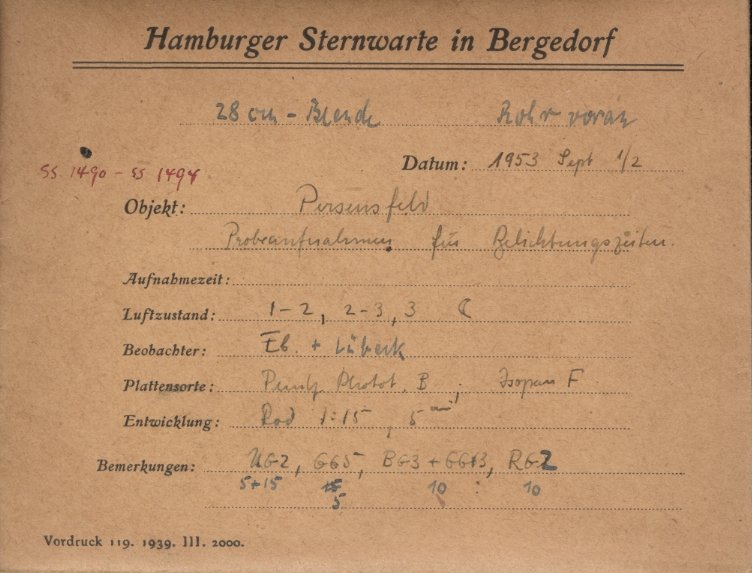 Hamburger Sternwarte in Bergedorf
28 cm - Blende Rohr voran
SS. 1490 - SS 1494
Datum: 1953 Sept 1/2
Objekt: Perseusfeld
Probeaufnahmen für Belichtungszeiten.
Aufnahmezeit:
Luftzustand: 1-2, 2-3, 3 ☾
Beobachter: Eb. + Lübeck
Plattensorte: Perutz Photot. B ; Isopan F
Entwicklung: Rod 1:15, 5 min
Bemerkungen: UG2, GG5, BG3 + GG13, RG2
5+15 5 10 10
Vordruck 119. 1939. III. 2000.